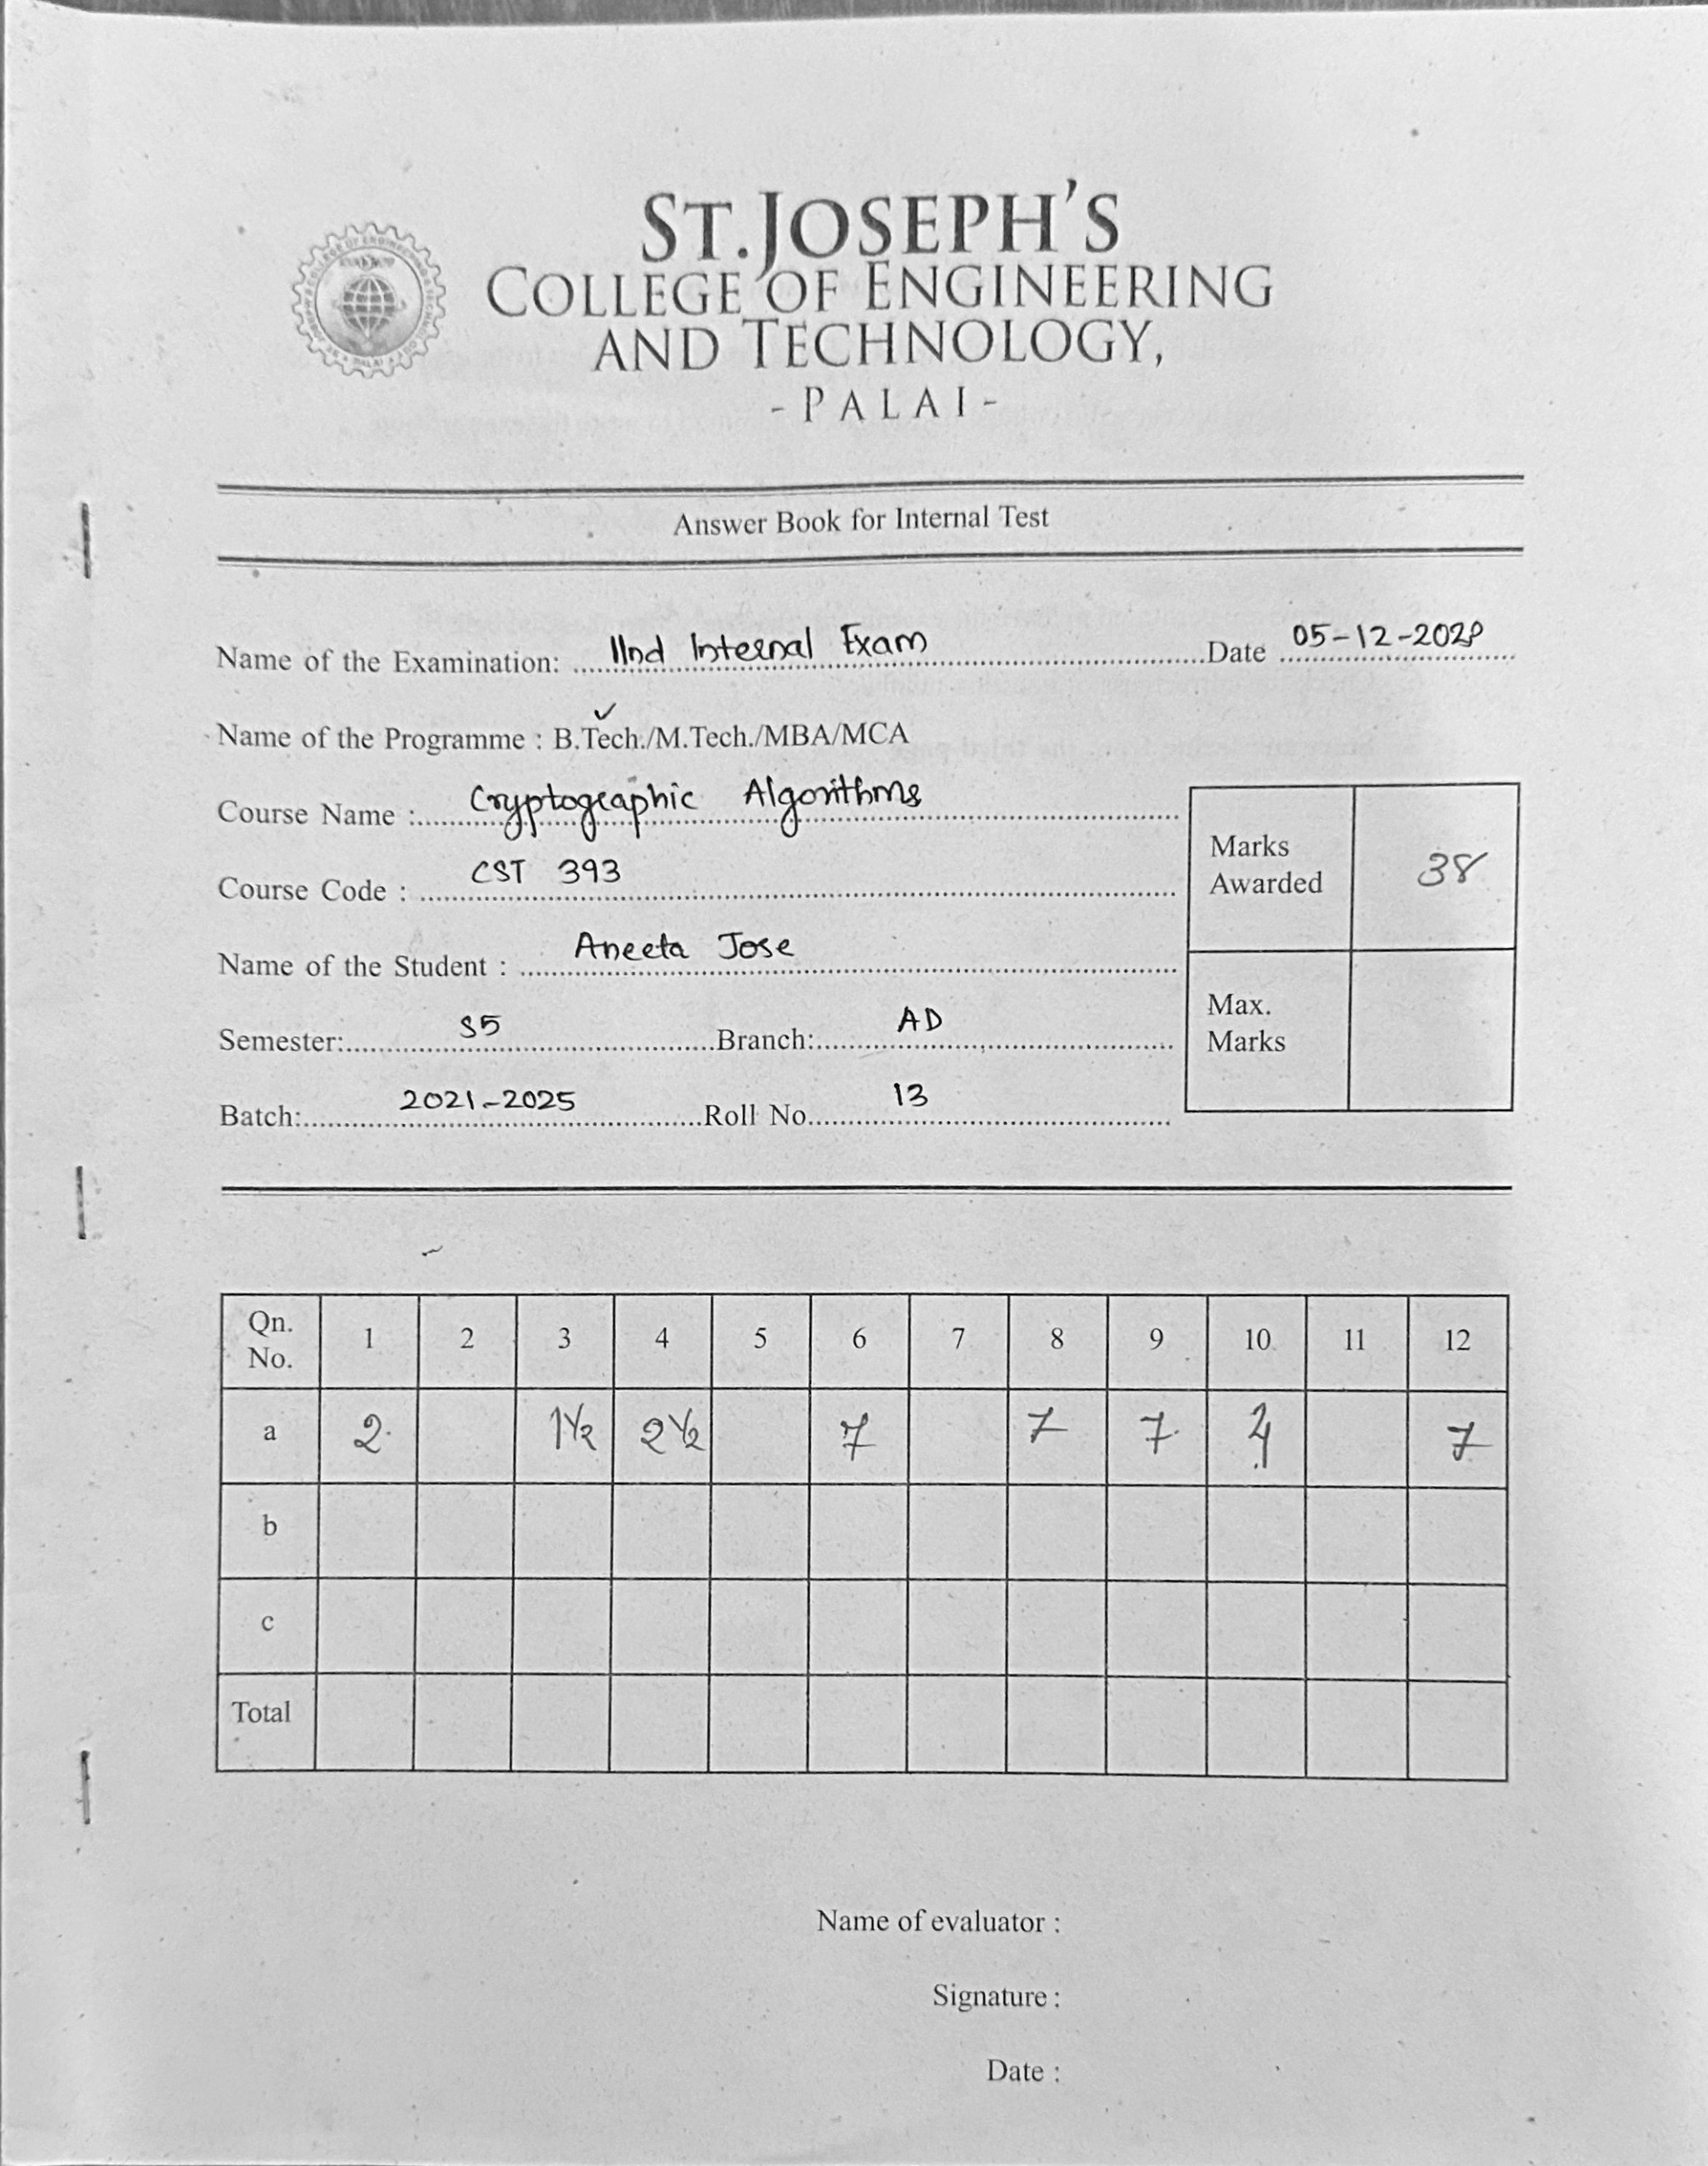 ST. JOSEPH'S
COLLEGE OF ENGINEERING
AND TECHNOLOGY,
- PALAI -
Answer Book for Internal Test
Name of the Examination: IInd Internal Exam Date 05-12-202
Name of the Programme : B.Tech./M.Tech./MBA/MCA
Course Name : Cryptographic Algorithms
Course Code : CST 393
Name of the Student : Aneeta Jose
Semester: S5 Branch: AD
Batch: 2021-2025 Roll No. 13
Marks Awarded 38
Max. Marks
Qn. No. 1 2 3 4 5 6 7 8 9 10 11 12
a 2 1½ 2½ 7 7 7 4 7
b
c
Total
Name of evaluator :
Signature :
Date :